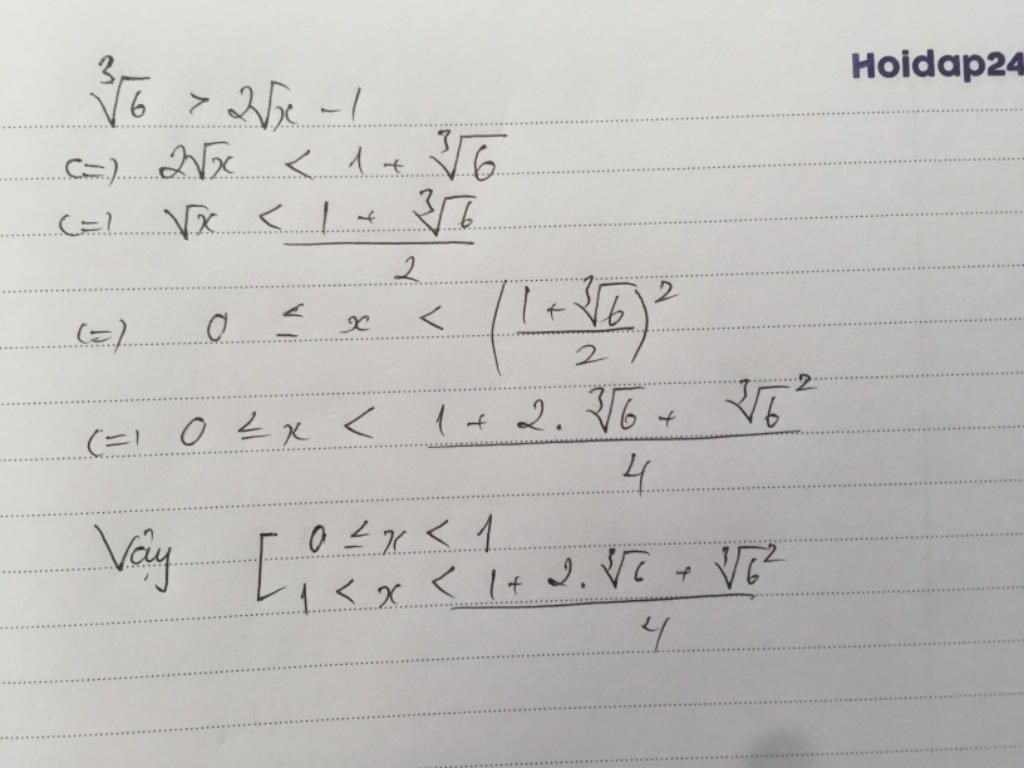 Hoidap24
∛6 > 2√x - 1
(=) 2√x < 1 + ∛6
(=) √x < (1 + ∛6)/2
(=) 0 ≤ x < ((1 + ∛6)/2)²
(=) 0 ≤ x < (1 + 2. ∛6 + ∛6²)/4
Vậy [ 0 ≤ x < 1
1 < x < (1 + 2. ∛6 + ∛6²)/4